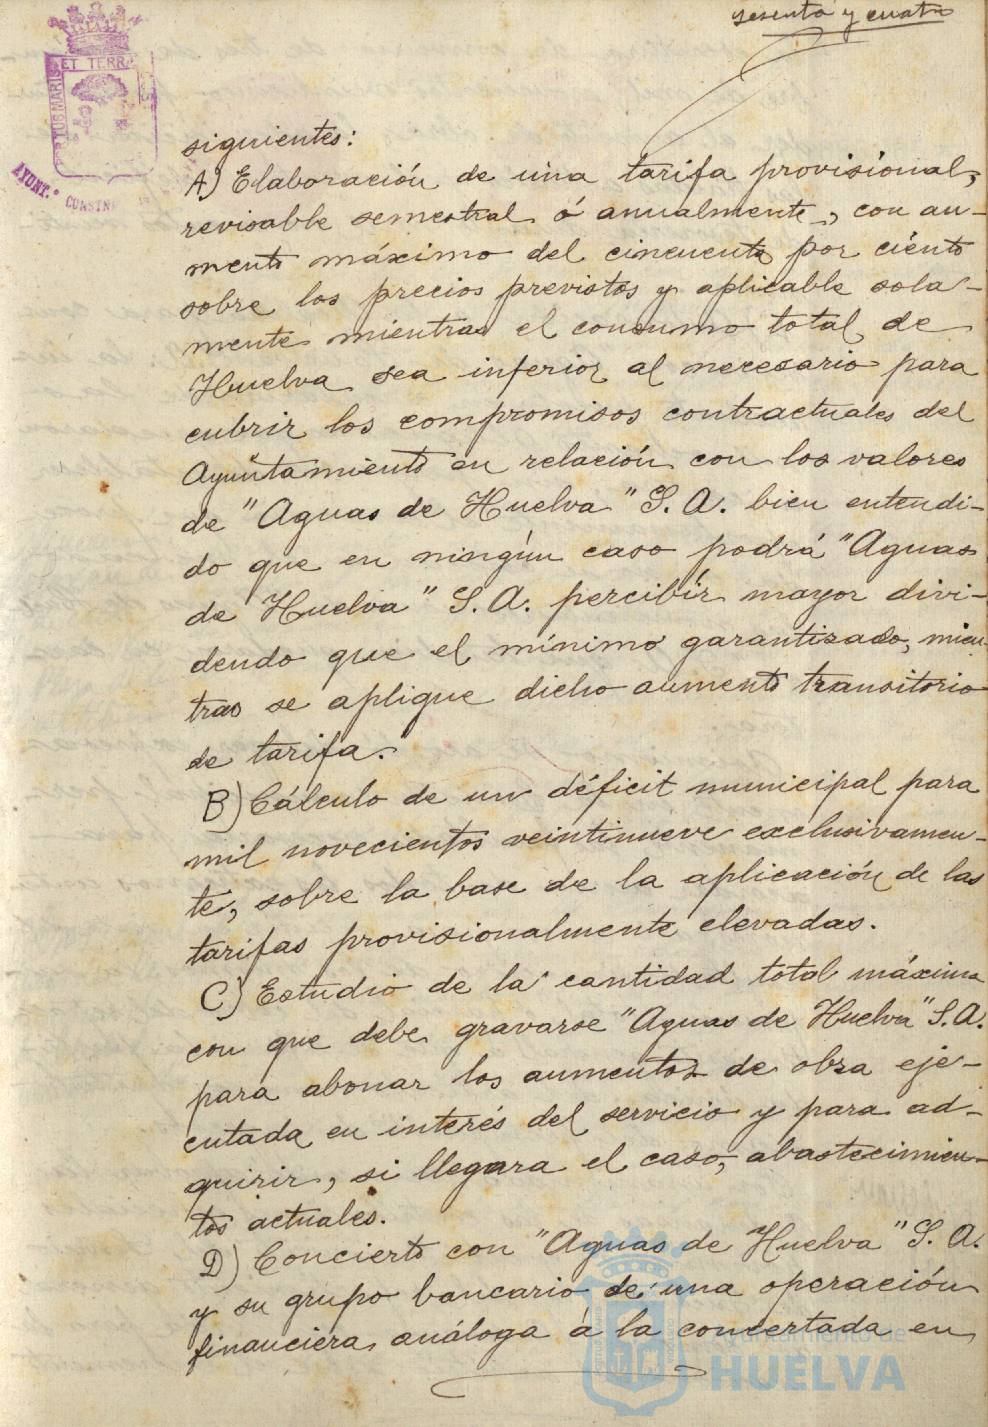 sesenta y cuatro
PORTUS MARIS ET TERRÆ
AYUNT.º
siguientes:
A) Elaboración de una tarifa provisional,
revisable semestral ó anualmente, con au-
mento máximo del cincuenta por ciento
sobre los precios previstos y aplicable sola-
mente mientras el consumo total de
Huelva sea inferior al necesario para
cubrir los compromisos contractuales del
Ayuntamiento en relación con los valores
de "Aguas de Huelva" S. A. bien entendi-
do que en ningún caso podrá "Aguas
de Huelva" S. A. percibir mayor divi-
dendo que el mínimo garantizado, mien-
tras se aplique dicho aumento transitorio
de tarifa.
B) Cálculo de un déficit municipal para
mil novecientos veintinueve exclusivamen-
te, sobre la base de la aplicación de las
tarifas provisionalmente elevadas.
C) Estudio de la cantidad total máxima
con que debe gravarse "Aguas de Huelva" S. A.
para abonar los aumentos de obra eje-
cutada en interés del servicio y para ad-
quirir, si llegara el caso, abastecimien-
tos actuales.
D) Concierto con "Aguas de Huelva" S. A.
y su grupo bancario de una operación
financiera análoga á la concertada en
Ayuntamiento de
HUELVA